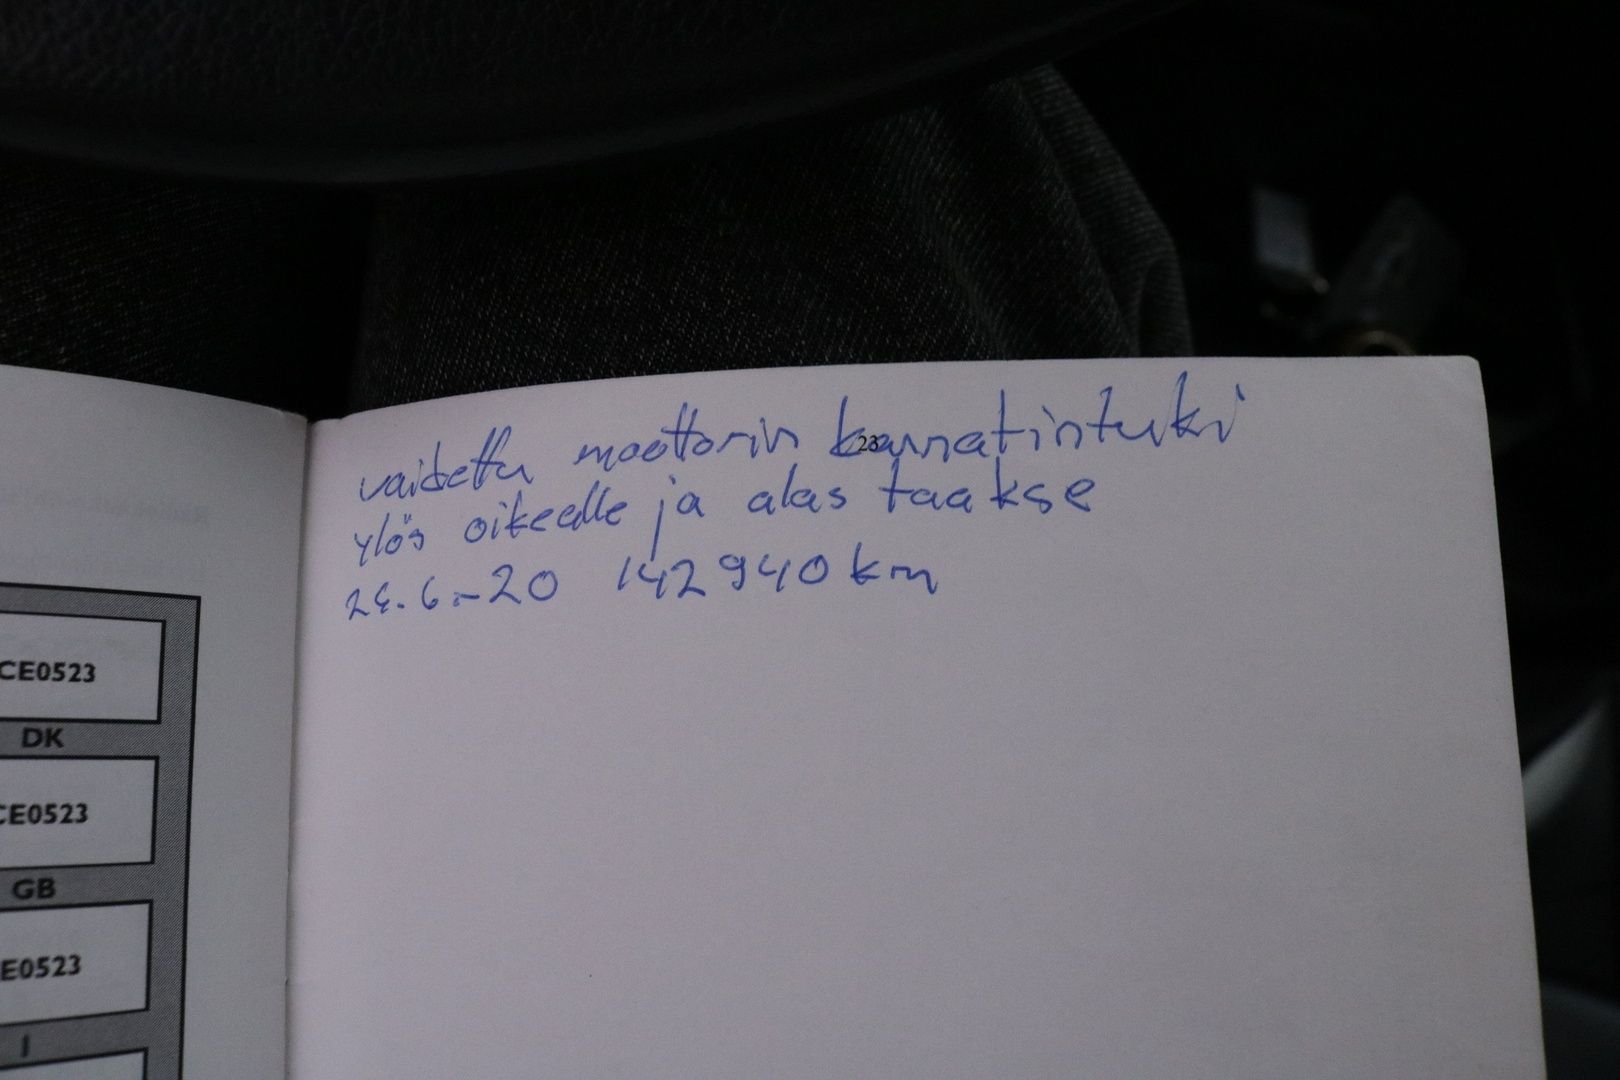 vaidettu moottorin kannatintuki
ylös oikealle ja alas taakse
24.6.-20 142940 km
23
CE0523
DK
CE0523
GB
E0523
I